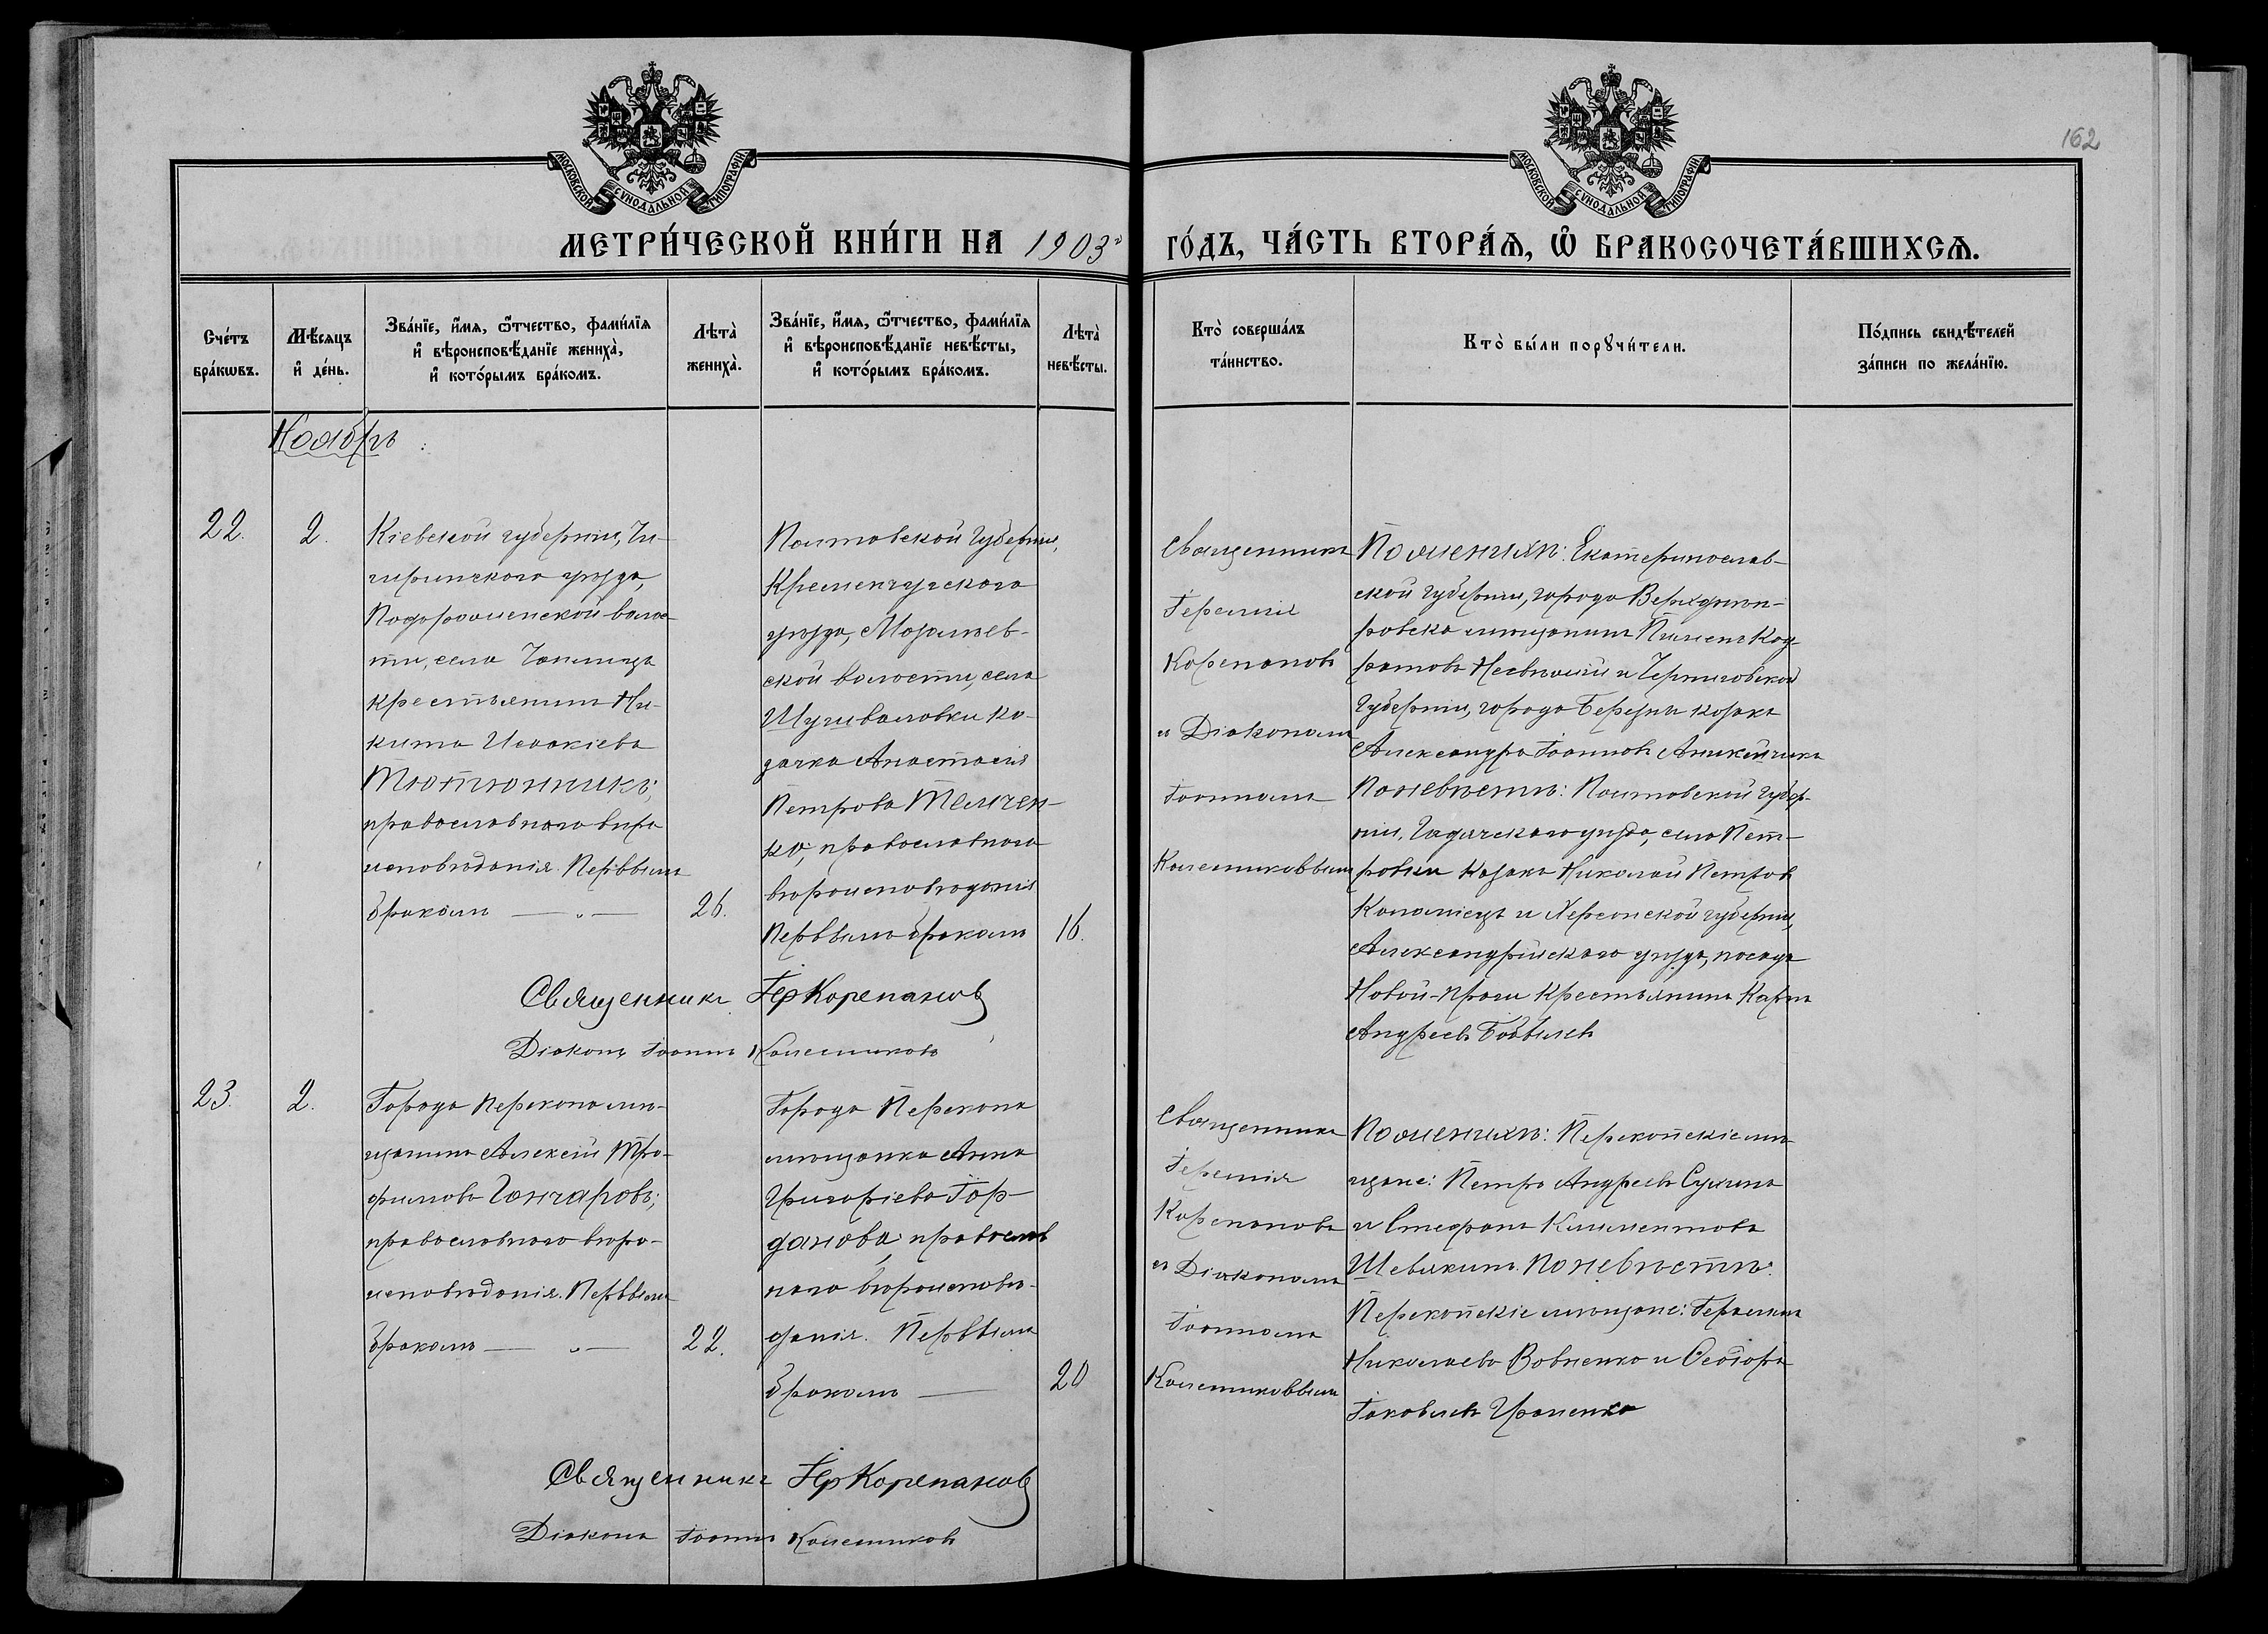 162
МОСКОВСКОЙ СѴНОДАЛЬНОЙ ТИПОГРАФІИ.
МОСКОВСКОЙ СѴНОДАЛЬНОЙ ТИПОГРАФІИ.
МЕТРИ́ЧЕСКОЙ КНИ́ГИ НА 1903 ГО́ДЪ, ЧА́СТЬ ВТОРА́Ѧ, Ѽ БРАКОСОЧЕТА́ВШИХСѦ.
Сче́тъ
бра́кѡвъ.
Мѣ́сяцъ
и҆ де́нь.
Зва́нїе, и҆́мѧ, ѻ҆́тчество, фами́лїѧ
и҆ вѣроисповѣ́данїе жениха̀,
и҆ кото́рымъ бра́комъ.
Лѣта̀
жениха̀.
Зва́нїе, и҆́мѧ, ѻ҆́тчество, фами́лїѧ
и҆ вѣроисповѣ́данїе невѣ́сты,
и҆ кото́рымъ бра́комъ.
Лѣта̀
невѣ́сты.
Кто̀ соверша́лъ
та́инство.
Кто̀ бы́ли порꙋчи́тели.
По́дпись свидѣ́телей
за́писи по жела́нїю.
Ноябрь
22.
2.
Кіевской губерніи, Чи-
гиринского уѣзда,
волос
ти, села
крестьянинъ Ни-
кита Исаакіевъ
Тютюнникъ;
православнаго вѣро
исповѣданія. Первымъ
бракомъ — „ —
26.
Полтавской Губерніи,
Кременчугскаго
уѣзда,
ской волости, села
Шушваловки ко-
зачка Анастасія
Петрова Темчен-
ко, православнаго
вѣроисповѣданія
Первымъ бракомъ
16.
Священникъ
Іеремія
Корепановъ
съ Діакономъ
Іоанномъ
Колесниковымъ
По женихѣ: Екатеринослав-
ской Губерніи, города Верхднѣп-
ровска мѣщанинъ Пименъ Код-
ратовъ и Черниговской
Губерніи, города козакъ
Александръ Іоанновъ
По невѣстѣ: Полтавской Губер-
ніи, Гадячскаго уѣзда, села Пет-
ровки козакъ Николай Петровъ
Коломіецъ и Херсонской Губерніи,
Александрійскаго уѣзда, посада
Новой-Праги крестьянинъ Карпъ
Андреевъ
Священникъ Іер Корепановъ
Діаконъ Іоаннъ Колесниковъ
23.
2.
Города Перекопа мѣ-
щанинъ Алексій Тро-
фимовъ Гончаровъ;
православнаго вѣро-
исповѣданія. Первымъ
бракомъ — „ —
22.
Города Перекопа
мѣщанка Анна
Григоріева Іор-
данова, православ
наго вѣроисповѣ-
данія. Первымъ
бракомъ —
20
Священникъ
Іеремія
Корепановъ
съ Діакономъ
Іоанномъ
Колесниковымъ
По женихѣ: Перекопскіе мѣ-
щане: Петръ Андреевъ Сухина
и Стефанъ Климентовъ
Шевякинъ. По невѣстѣ:
Перекопскіе мѣщане: Герасимъ
Николаевъ Вовченко и Ѳеодоръ
Іаковлевъ
Священникъ Іер Корепановъ
Діаконъ Іоаннъ Колесниковъ